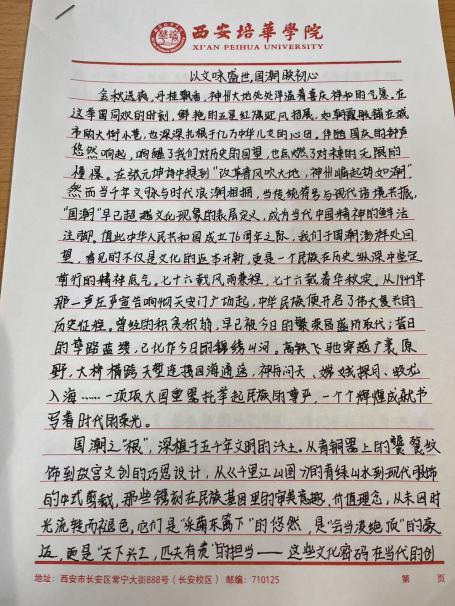 西安培華學院
XI'AN PEIHUA UNIVERSITY
以文咏盛世,国潮映初心
金秋送爽,丹桂飘香,神州大地处处洋溢着喜庆祥和的气息。在
这举国同欢的时刻,鲜艳的五星红旗迎风招展,如朝霞般铺在城
市的大街小巷,也深深扎根于亿万中华儿女的心田。伴随国庆的钟声
悠然响起,响醒了我们对历史的回望,也点燃了对未来的无限的
憧憬。在张元坤诗中提到“汉革春风吹大地,神州崛起势如潮”
然而当千年文脉与时代浪潮相拥,当传统符号与现代语境共振,
“国潮”早已超越文化现象的表层定义,成为当代中国精神的鲜活
注脚。值此中华人民共和国成立76周年之际,我们于国潮澎湃处回
望,看见的不仅是文化的返本开新,更是一个民族在历史纵深中坚定
前行的精神底气。七十六载风雨兼程,七十六载春华秋实。从1949年
那一声庄严宣告响彻天安门广场起,中华民族便开启了伟大复兴的
历史征程。曾经的积贫积弱,早已被今日的繁荣昌盛所取代;昔日
的筚路蓝缕,已化作今日的锦绣山河。高铁飞驰穿越广袤原
野,大桥横跨天堑连接四海通途,神舟问天、嫦娥探月、蛟龙
入海……一项项大国重器托举起民族的尊严,一个个辉煌成就书
写着时代的荣光。
国潮之“根”,深植于五千年文明的沃土。从青铜器上的饕餮纹
饰到故宫文创的巧思设计,从《千里江山图》的青绿山水到现代服饰
的中式剪裁,那些镌刻在民族基因里的审美意趣、价值理念,从未因时
光流转而褪色。它们是“采菊东篱下”的悠然,是“会当凌绝顶”的豪
迈,更是“天下兴亡,匹夫有责”的担当——这些文化密码在当代的创
地址:西安市长安区常宁大街888号(长安校区) 邮编:710125 第 页